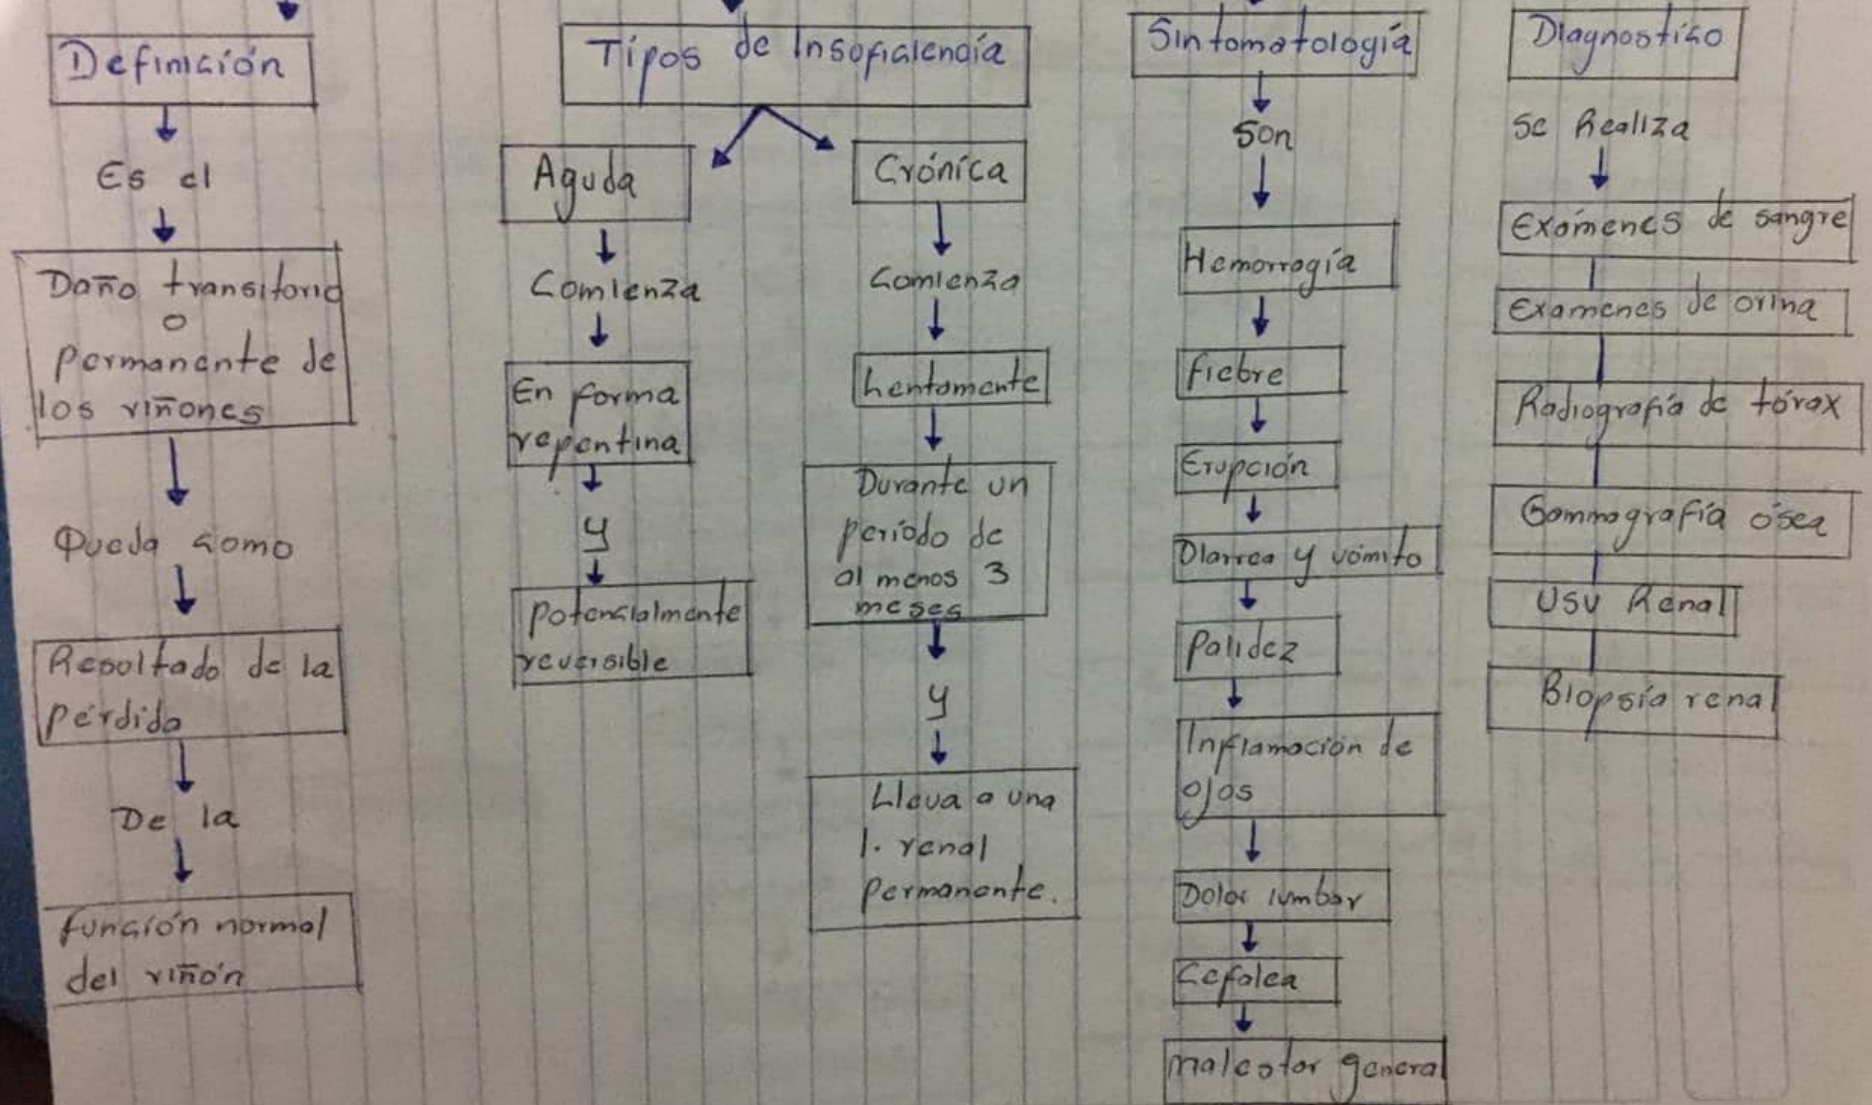 Definición
Es el
Daño transitorio
o
permanente de
los riñones
Queda como
Resultado de la
pérdida
De la
función normal
del riñón
Tipos de Insuficiencia
Aguda
Comienza
En forma
repentina
y
potencialmente
reversible
Crónica
Comienza
Lentamente
Durante un
período de
al menos 3
meses
y
Lleva a una
I. renal
permanente.
Sintomatología
Son
Hemorragía
fiebre
Erupción
Diarrea y vómito
Palidez
Inflamación de
ojos
Dolor lumbar
Cefalea
malestar general
Diagnostico
Se Realiza
Exámenes de sangre
Examenes de orina
Radiografía de tórax
Gammografía ósea
USV Renal
Biopsia renal